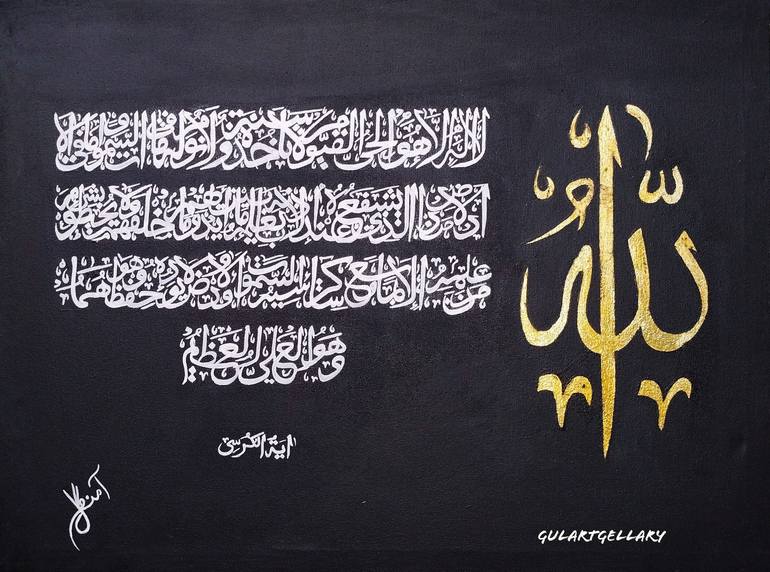 الله
الله لا اله الا هو الحي القيوم لا تاخذه سنة ولا نوم له ما في السموت وما في الا
رض من ذا الذي يشفع عنده الا باذنه يعلم ما بين ايديهم وما خلفهم ولا يحيطون بشيء
من علمه الا بما شاء وسع كرسيه السموت والارض ولا يوده حفظهما
وهو العلي العظيم
اية الكرسي
GULARTGELLARY